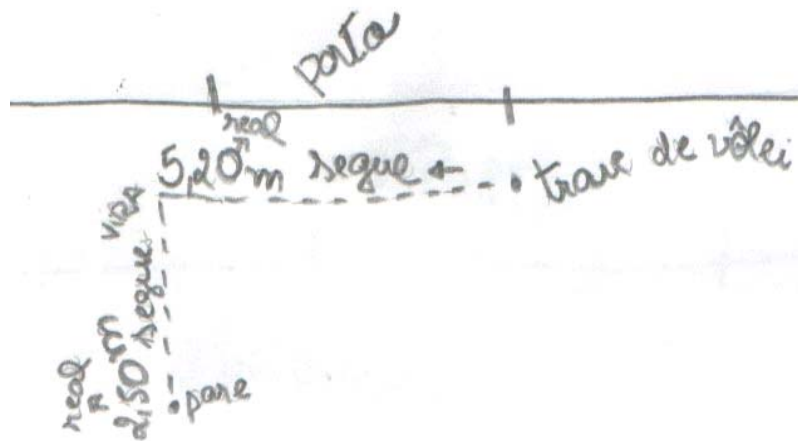 porta
real
5,20 m segue ←
trave de vôlei
VIRA
real
2,50 m segue
pare